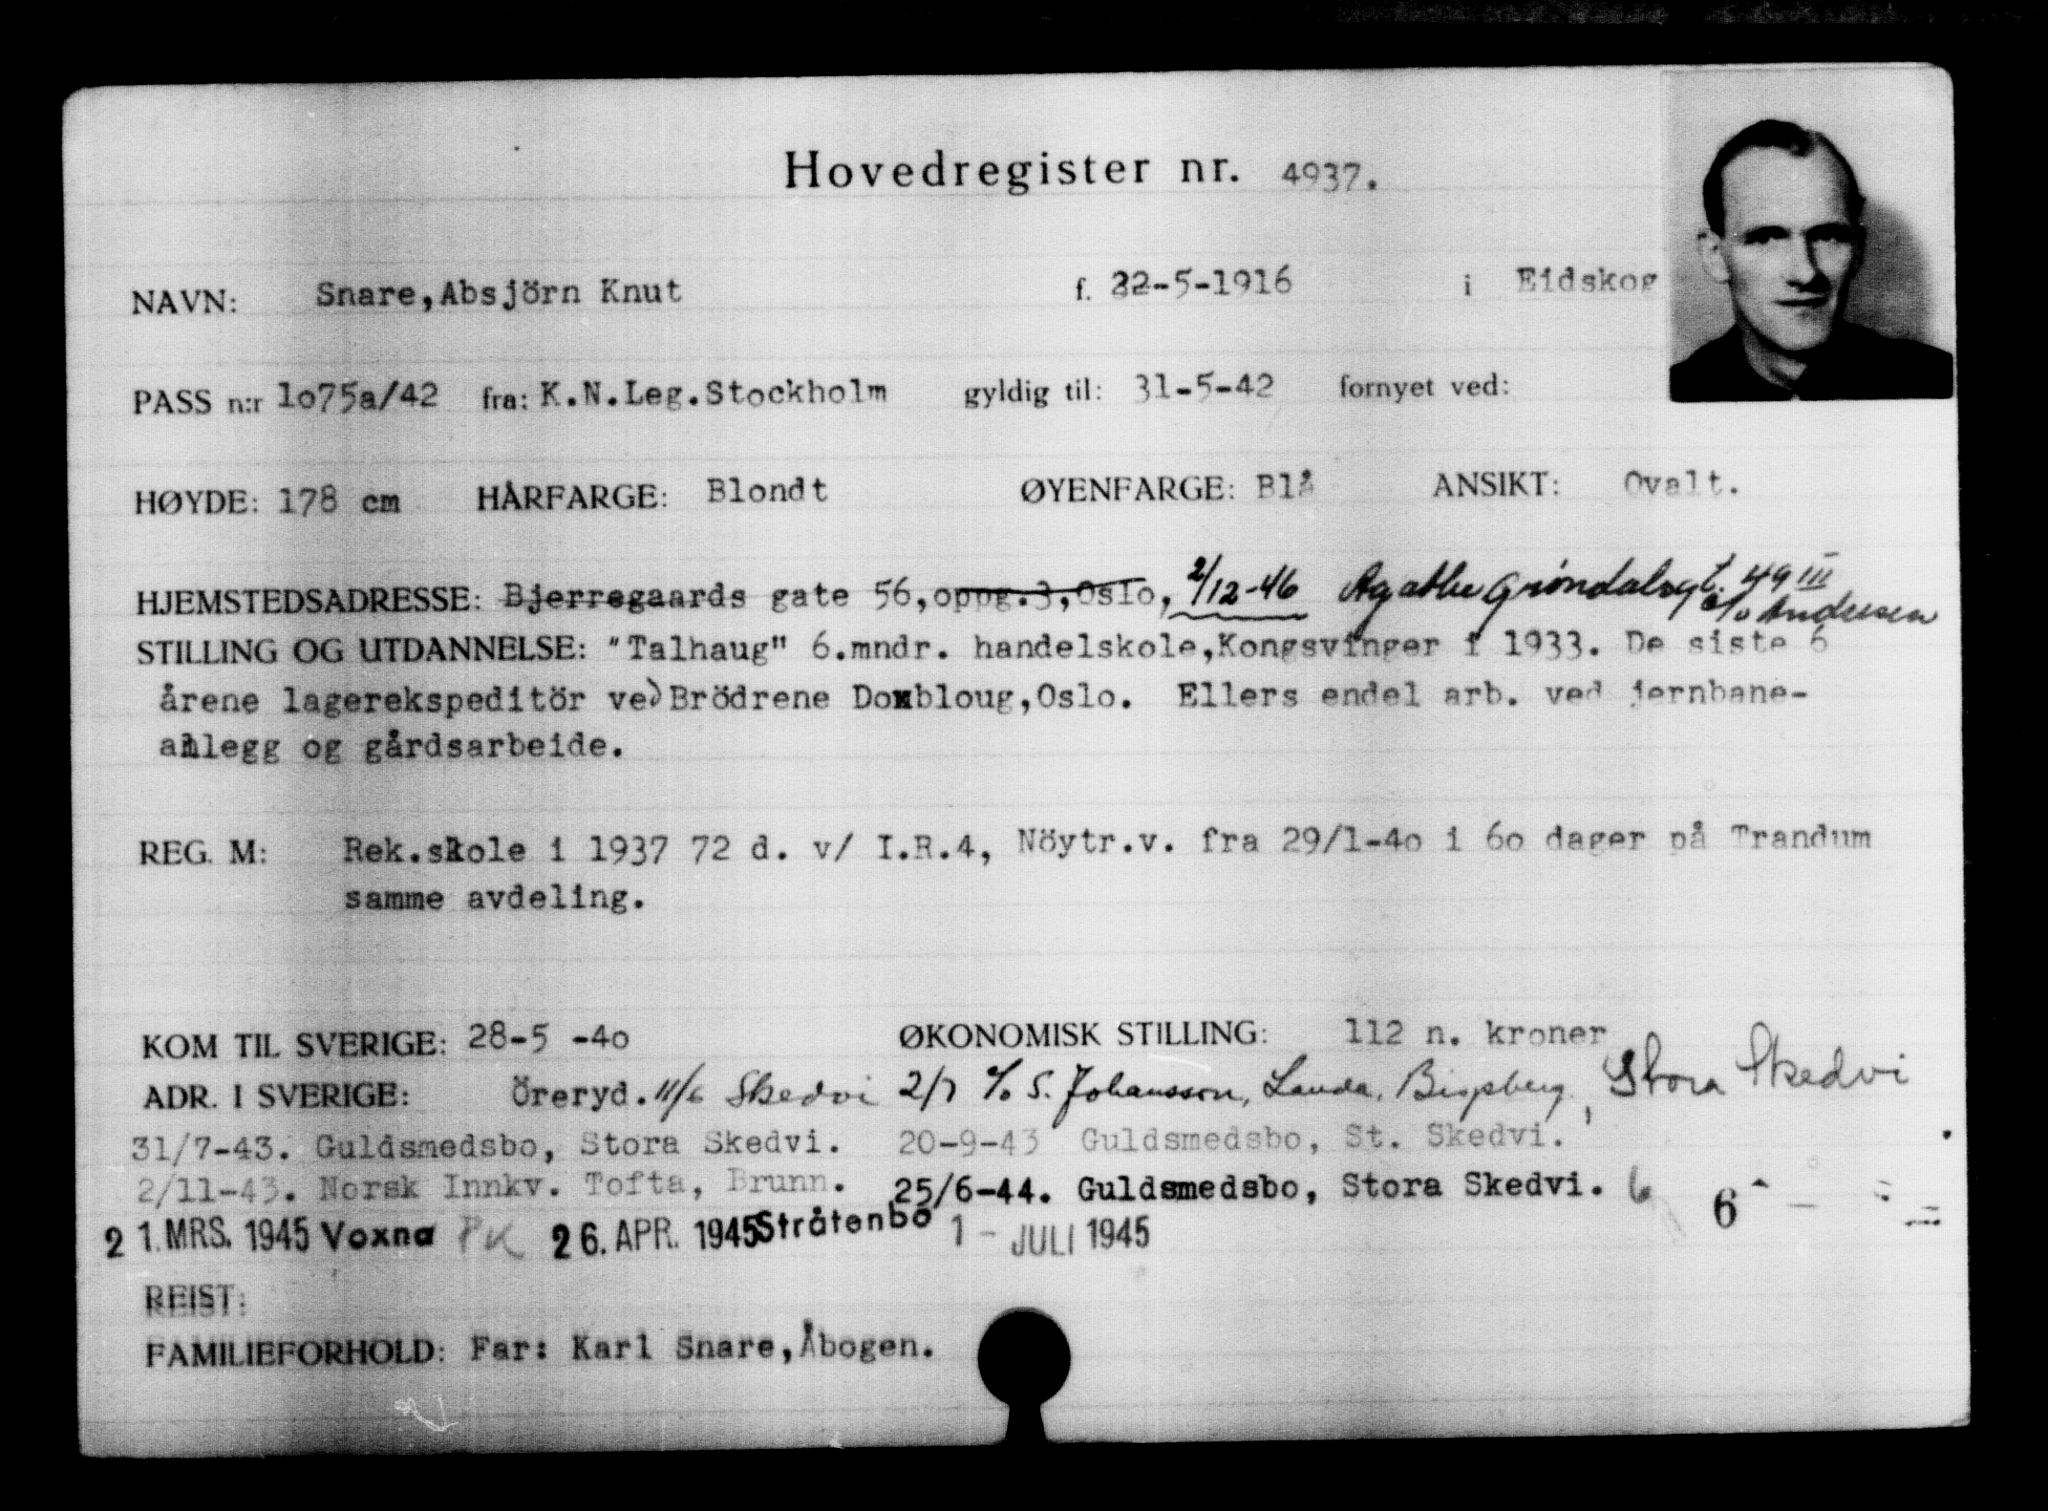 Hovedregister nr. 4937.
NAVN: Snare,Absjörn Knut f. 22-5-1916 i Eidskog
PASS n:r 1o75a/42 fra: K.N.Leg.Stockholm gyldig til: 31-5-42 fornyet ved:
HØYDE: 178 cm HÅRFARGE: Blondt ØYENFARGE: Blå ANSIKT: Ovalt.
HJEMSTEDSADRESSE: Bjerregaards gate 56,oppg.3,Oslo, 2/12-46 Agathe Grøndalsgt. 49 III
c/o Andersen
STILLING OG UTDANNELSE: "Talhaug" 6.mndr. handelskole,Kongsvinger i 1933. De siste 6
årene lagerekspeditör ved Brödrene Dobloug,Oslo. Ellers endel arb. ved jernbane-
anlegg og gårdsarbeide.
REG. M: Rek.skole i 1937 72 d. v/ I.R.4, Nöytr.v. fra 29/1-4o i 6o dager på Trandum
samme avdeling.
KOM TIL SVERIGE: 28-5 -4o ØKONOMISK STILLING: 112 n. kroner
ADR. I SVERIGE: Öreryd. 11/6 Skedvi 2/7 c/o S. Johansson, Landa, Bispberg, Stora Skedvi
31/7-43. Guldsmedsbo, Stora Skedvi. 20-9-43 Guldsmedsbo, St. Skedvi.
2/11-43. Norsk Innkv. Tofta, Brunn. 25/6-44. Guldsmedsbo, Stora Skedvi. 6 6
2 1. MRS. 1945 Voxna PK 26. APR. 1945 Stråtenbo 1 - JULI 1945
REIST:
FAMILIEFORHOLD: Far: Karl Snare,Åbogen.